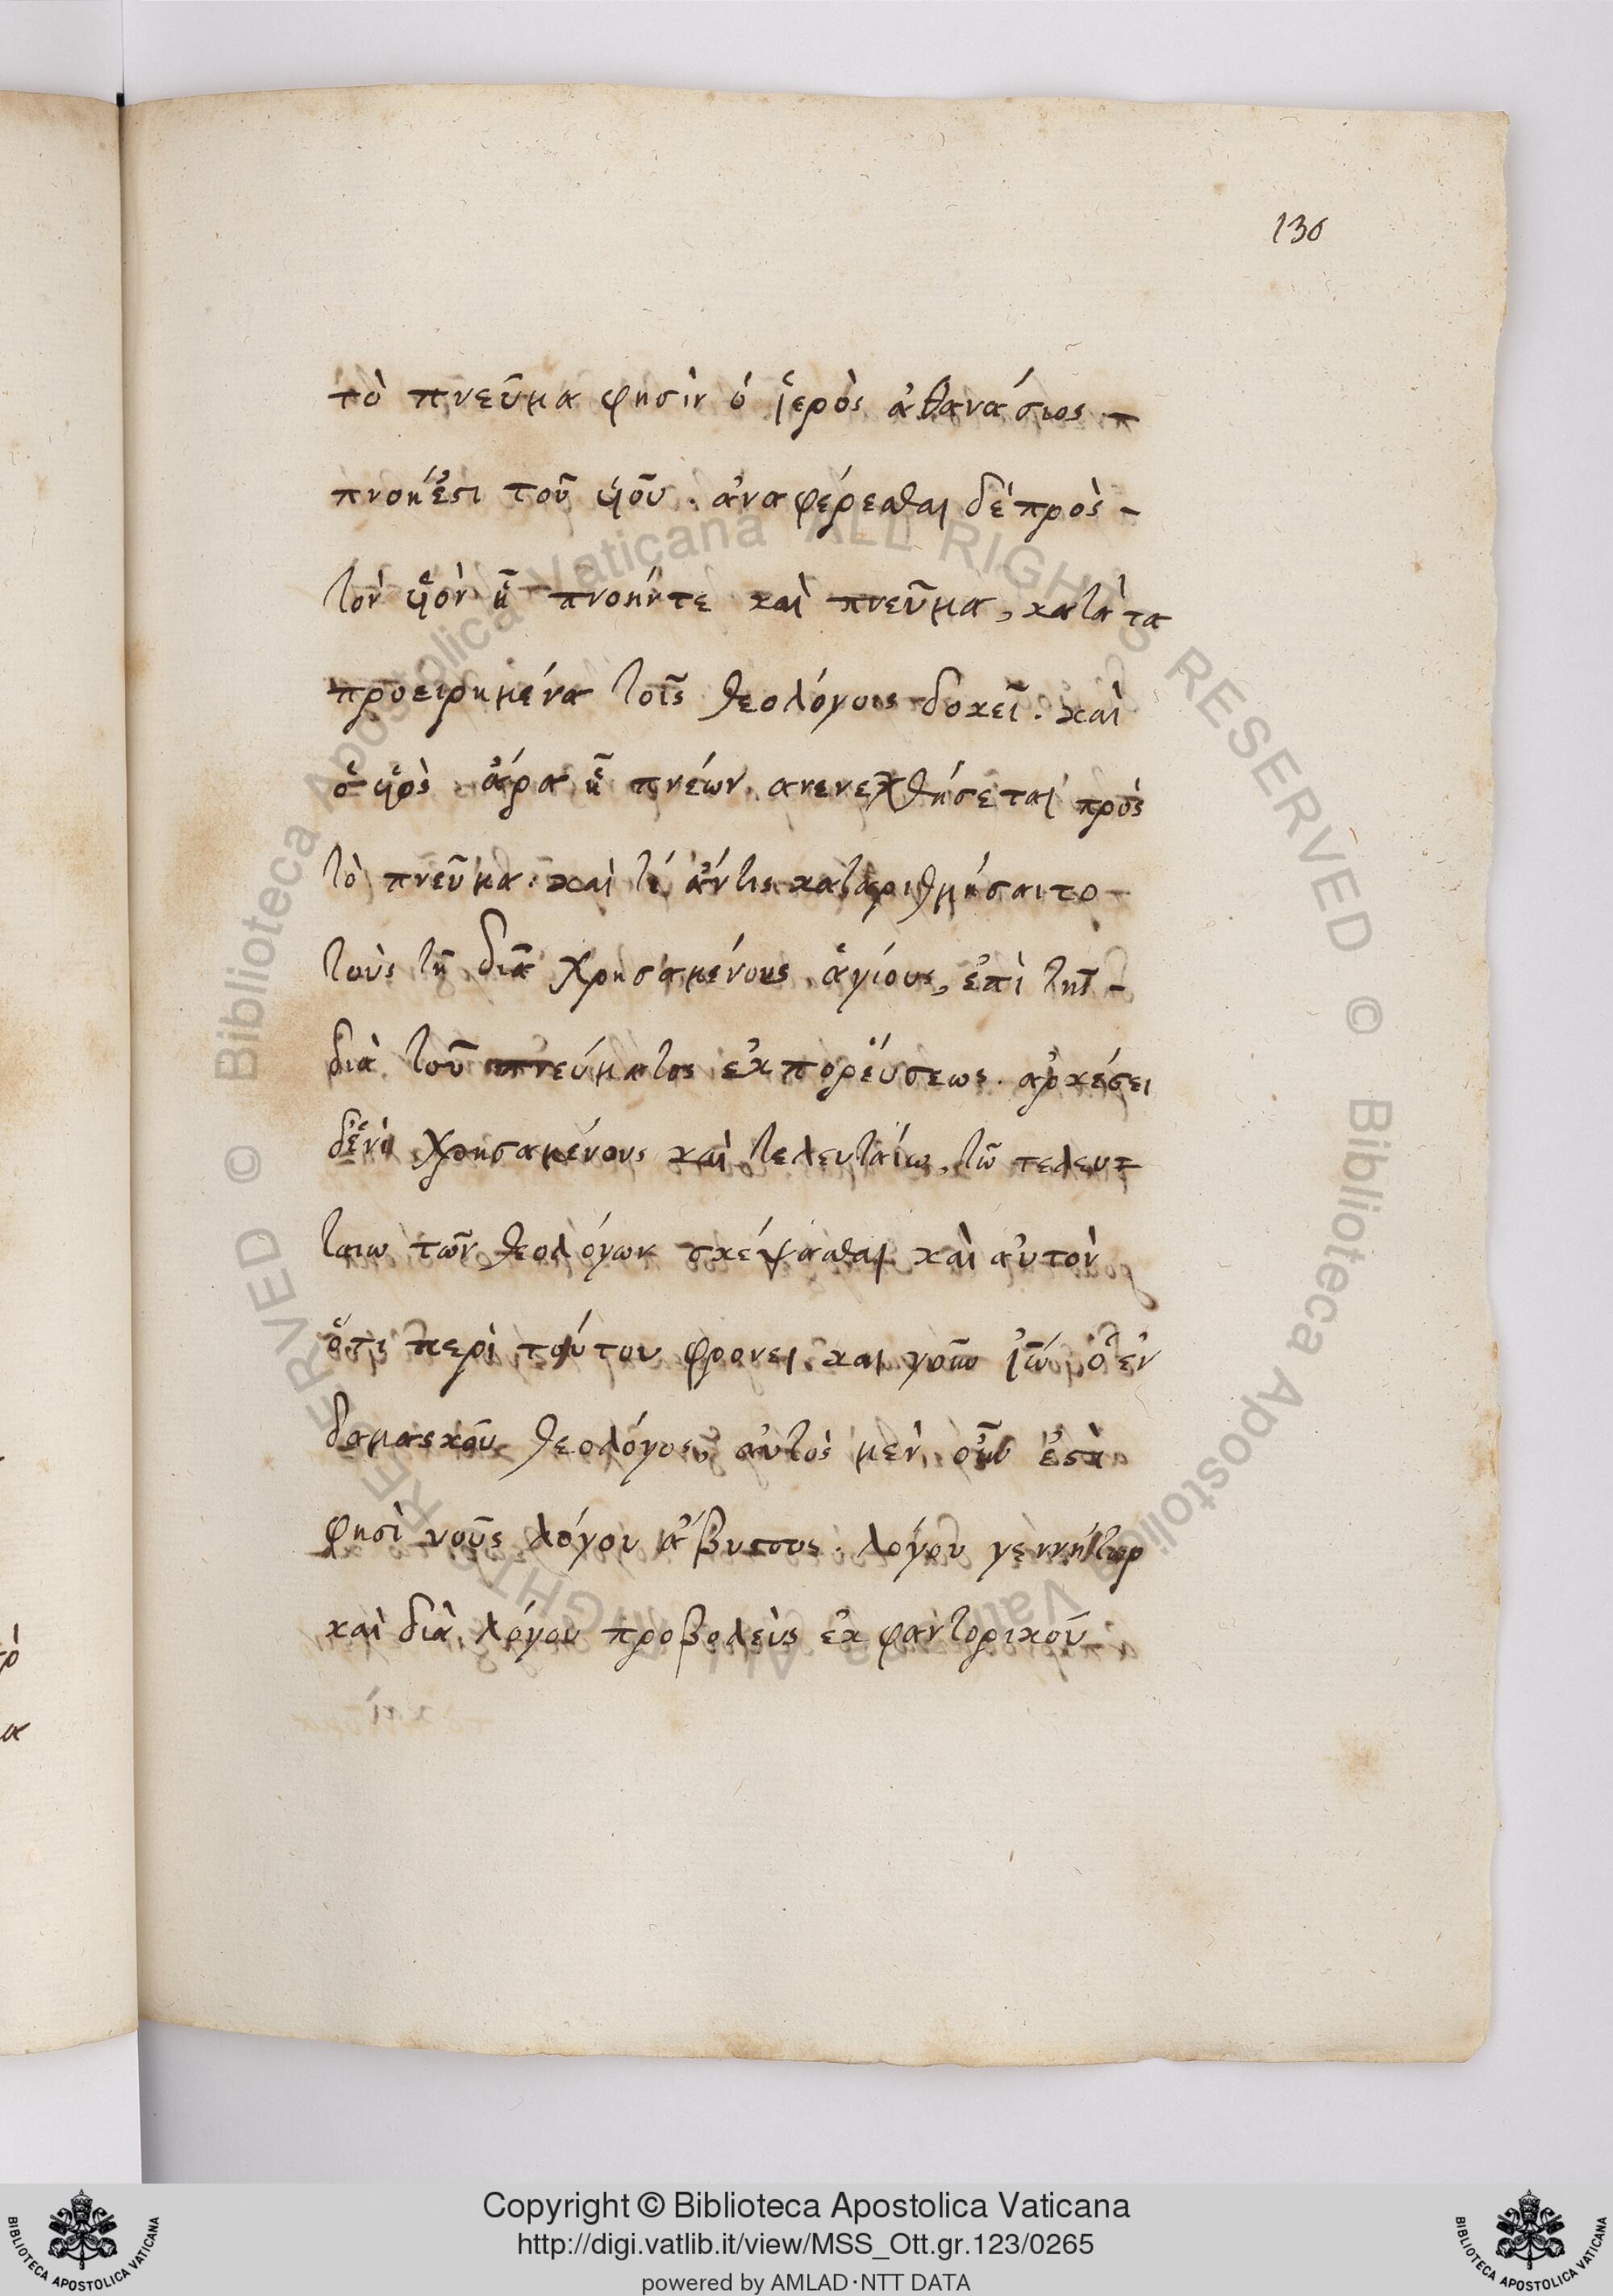 130
τὸ πνεῦμα φησὶν ὁ ἱερὸς ἀθανάσιος π
πνοή ἐστι τοῦ υἱοῦ. ἀναφέρεσθαι δὲ πρὸς -
τὸν υἱὸν ᾗ πνοήν τε καὶ πνεῦμα, κατὰ τα
προειρημένα τοῖς θεολόγοις δοκεῖ. καὶ
ὁ υἱὸς ἄρα ᾗ πνέων ανενεχθήσεται πρὸς
τὸ πνεῦμα. καὶ τί ἄν τις καταριθμήσαιτο -
τοὺς τῇ διὰ χρησαμένους ἁγίους, ἐπὶ τῆς -
διὰ τοῦ πνεύματος ἐκπορεύσεως. ἀρκέσει
δἑνὶ χρησαμένους καὶ τελευταίω, τῶ τελευ=
ταιω τῶν θεολόγων σκέψασθαι καὶ αὐτὸν
ὅτι περὶ τούτου φρονει και ἰω ὁ ἐν
δαμασκοῦ θεολόγος, αὐτὸς μὲν οὖν ἐστὶ
φησὶ νοῦς λόγου ἄβυσσος. λόγου γεννήτωρ
καὶ διὰ λόγου προβολεὺς ἐκφαντορικοῦ
© Biblioteca Apostolica Vaticana ALL RIGHTS RESERVED © Biblioteca Apostolica Vaticana ALL RIGHTS RESERVED
Copyright © Biblioteca Apostolica Vaticana
http://digi.vatlib.it/view/MSS_Ott.gr.123/0265
powered by AMLAD·NTT DATA
BIBLIOTECA APOSTOLICA VATICANA
BIBLIOTECA APOSTOLICA VATICANA